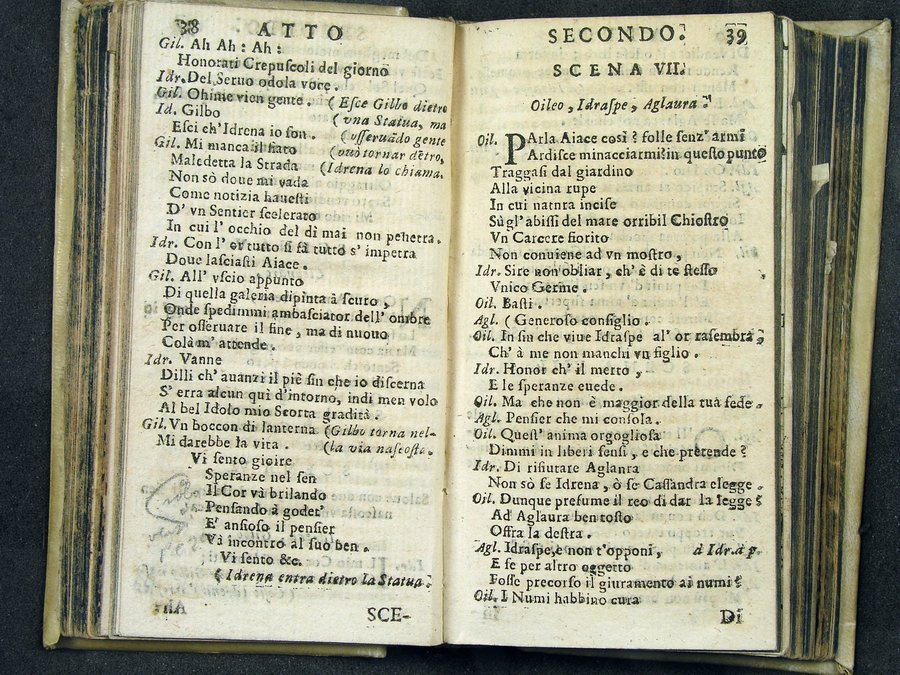 38 ATTO
Gil. Ah Ah : Ah :
Honorati Crepuſcoli del giorno
Idr. Del Seruo odola voce.
Gil. Ohime vien gente. (Eſce Gilbo dietro
Id. Gilbo (vna Statua, ma
Eſci ch'Idrena io ſon. (oſſeruādo gente
Gil. Mi manca il fiato (vuò tornar dētro,
Maledetta la Strada (Idrena lo chiama.
Non sò doue mi vada
Come notizia haueſti
D' vn Sentier ſcelerato
In cui l' occhio del dì mai non penetra.
Idr. Con l' or tutto ſi fà tutto s' impetra
Doue laſciaſti Aiace.
Gil. All' vſcio appunto
Di quella galeria dipinta à ſcuto,
Onde ſpedimmi ambaſciator dell' ombre
Per oſſeruare il fine, ma di nuouo
Colà m' attende.
Idr. Vanne
Dilli ch' auanzi il piè ſin che io diſcerna
S' erra alcun quì d'intorno, indi men volo
Al bel Idolo mio Scorta gradità.
Gil. Vn boccon di lanterna (Gilbo torna nel-
Mi darebbe la vita. (la via naſcoſta.
Vi ſento gioire
Speranze nel ſen
Il Cor và brilando
Penſando à godet'
E' anſioſo il penſier
Và incontro al ſuo ben.
Vi ſento &c.
(Idrena entra dietro la Statua.
SCE-
SECONDO. 39
SCENA VII.
Oileo, Idraſpe, Aglaura.
Oil. PArla Aiace così ? folle ſenz' armi
Ardiſce minacciarmi? in queſto punto
Traggaſi dal giardino
Alla vicina rupe
In cui natnra inciſe
Sù gl' abiſſi del mare orribil Chioſtro
Vn Carcere fiorito
Non conuiene ad vn moſtro,
Idr. Sire non obliar, ch' è di te ſteſſo
Vnico Germe.
Oil. Baſti.
Agl. (Generoſo conſiglio.
Oil. In ſin che viue Idraſpe al' or raſembra,
Ch' à me non manchi vn figlio.
Idr. Honor ch' il merto,
E le ſperanze euede.
Oil. Ma che non è maggior della tuà fede.
Agl. Penſier che mi conſola.
Oil. Queſt' anima orgoglioſa
Dimmi in liberi ſenſi, e che prètende ?
Idr. Di rifiutare Aglanra
Non sò ſe Idrena, ò ſe Caſſandra eſegge.
Oil. Dunque preſume il reo di dar la legge ?
Ad Aglaura ben toſto
Offra la deſtra.
Agl. Idraſpe, e non t'opponi, à Idr. à p.
E ſe per altro oggetto
Foſſe precorſo il giuramento ai numi ?
Oil. I Numi habbino cura
Di